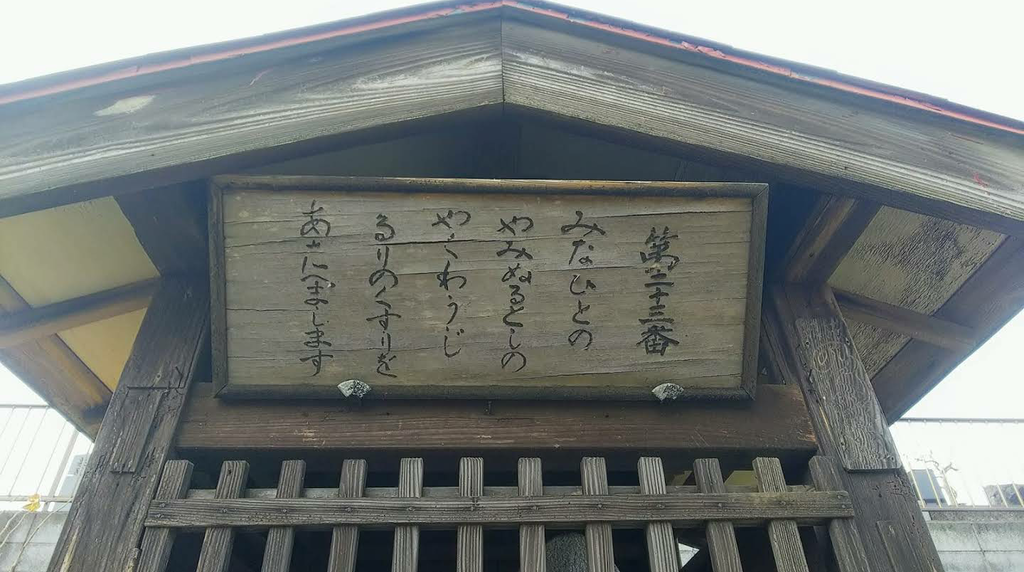 第二十三番
みなひとの
やみぬるとしの
やくわうじ
るりのくすりを
あたへまします